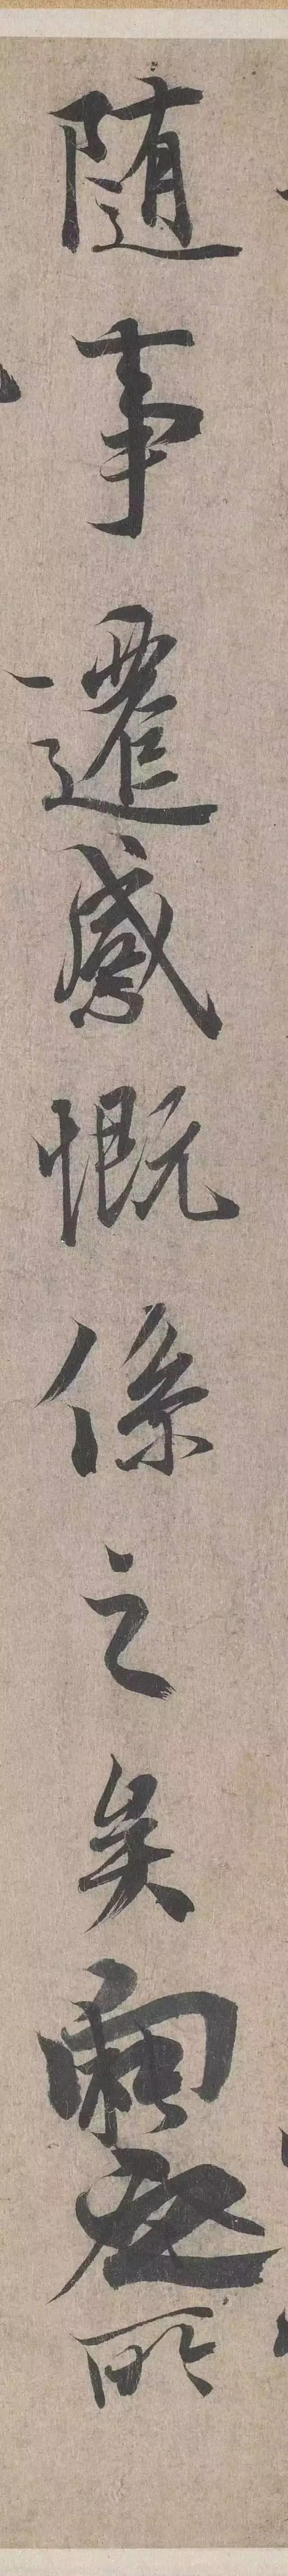 隨事遷感慨係之矣向之所